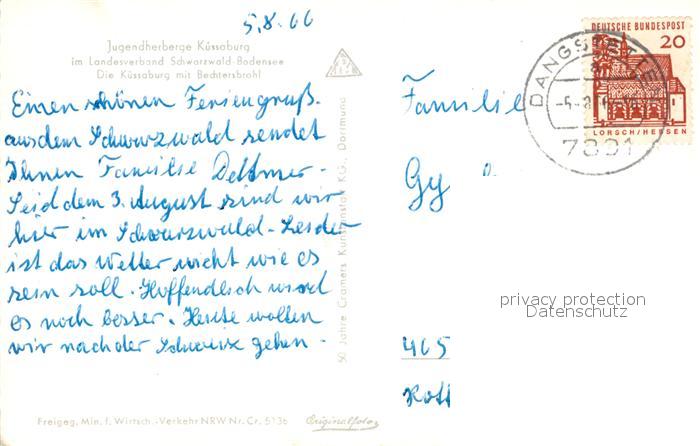 5.8.66
Jugendherberge Küssaburg
im Landesverband Schwarzwald-Bodensee
Die Küssaburg mit Bechtersbohl
Einen schönen Feriengruß
aus dem Schwarzwald sendet
Ihnen Familie Dettmer.
Seid dem 3. August sind wir
hier im Schwarzwald. Leider
ist das Wetter nicht wie es
sein soll. Hoffendlich wird
es noch besser. Heute wollen
wir nach der Schweiz gehen.
Freigeg. Min. f. Wirtsch.-Verkehr NRW Nr. Cr. 5136
Originalfoto
50 Jahre Cramers Kunstanstalt KG., Dortmund
DEUTSCHE BUNDESPOST
20
LORSCH/HESSEN
7891
Familie
Gy
D.
465
privacy protection
Datenschutz